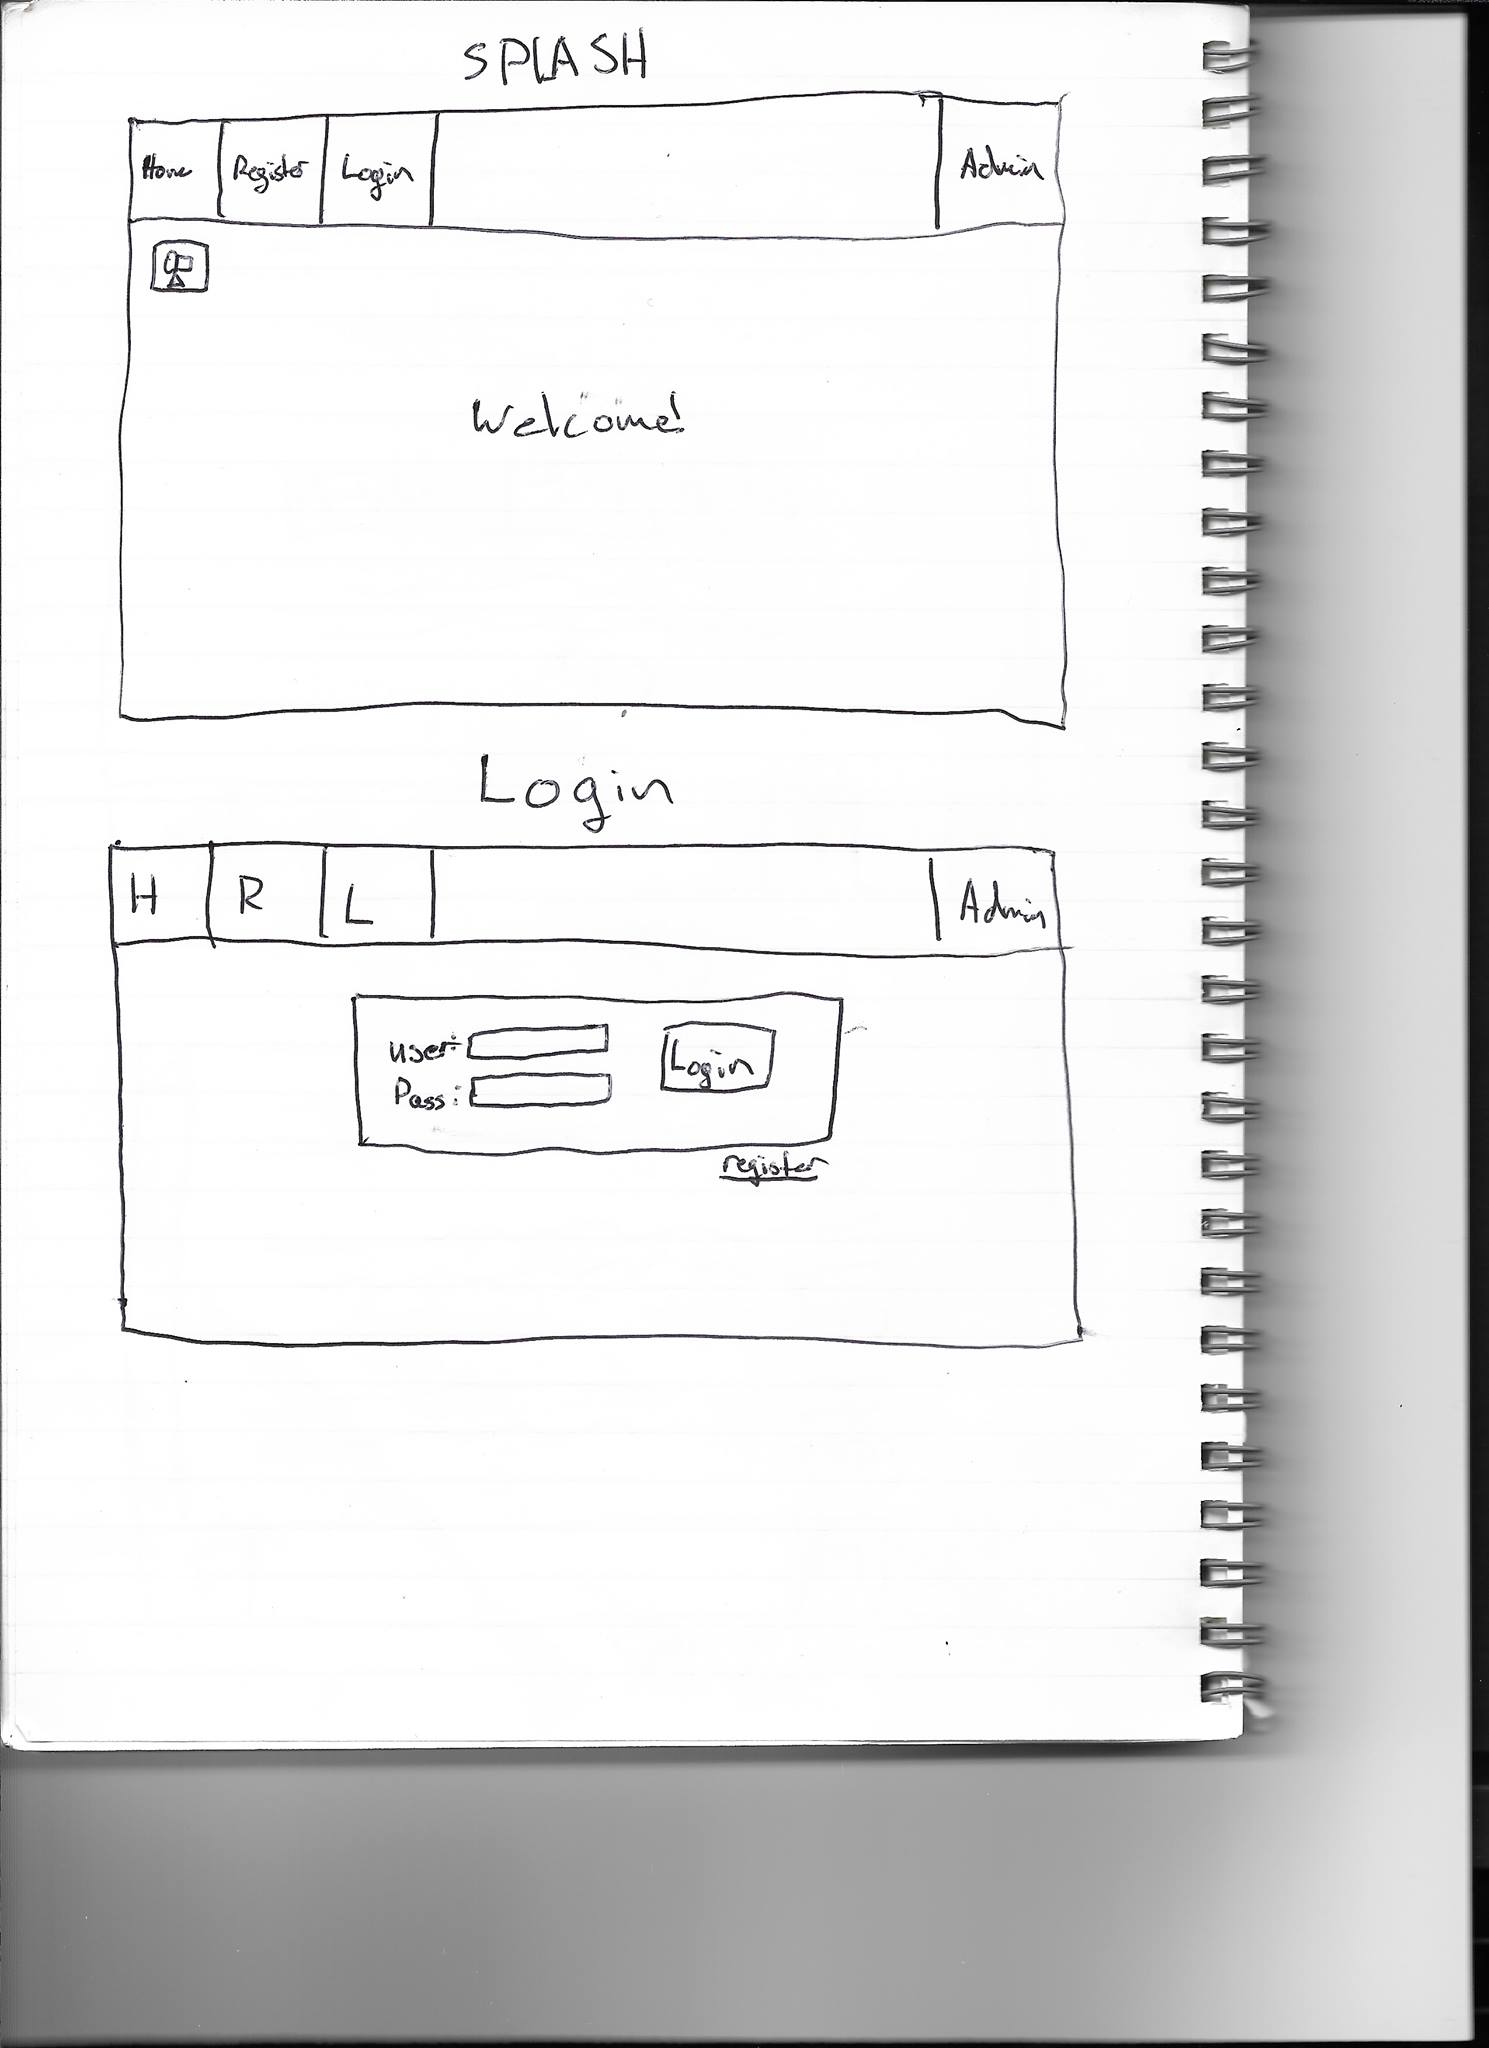 SPLASH
Home Register Login Admin
Welcome!
Login
H R L Admin
user:
Login
Pass:
register